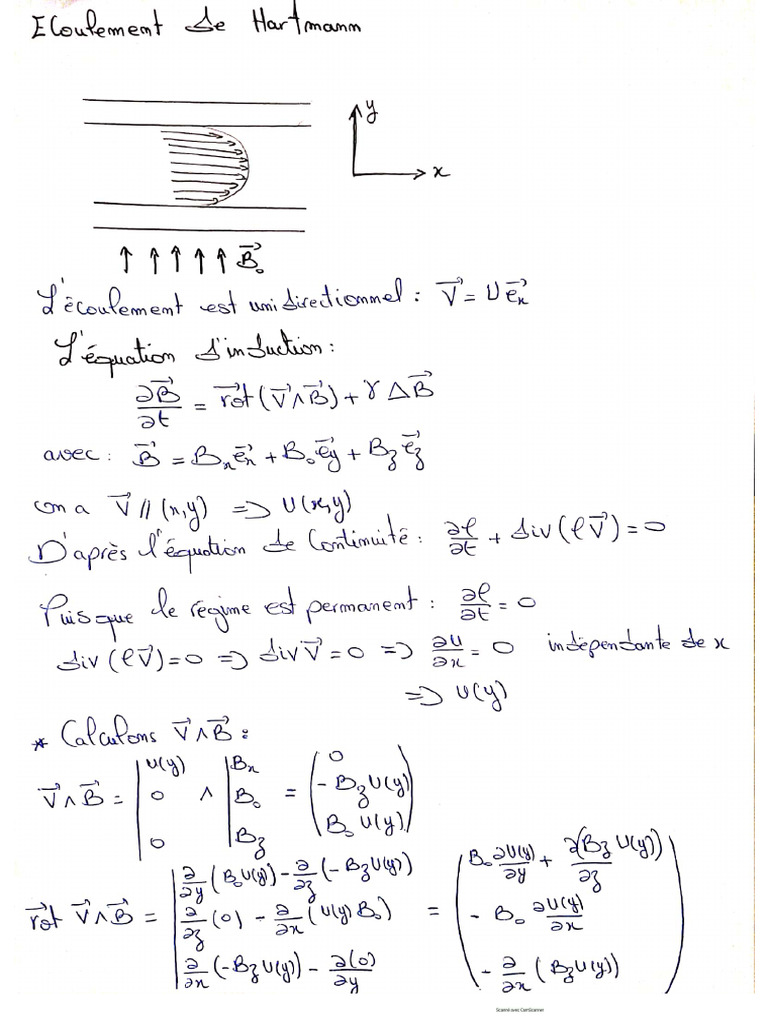 Ecoulement de Hartmann
y
x
B⃗₀
L'écoulement est unidirectionnel : V⃗ = U e⃗ₓ
L'équation d'induction :
∂B⃗/∂t = rot⃗(V⃗∧B⃗) + γ ΔB⃗
avec : B⃗ = Bₓe⃗ₓ + B₀e⃗y + B_z e⃗_z
on a V⃗ // (x,y) => U(x,y)
D'après l'équation de Continuité : ∂ρ/∂t + div(ρV⃗) = 0
Puisque le régime est permanent : ∂ρ/∂t = 0
div(ρV⃗) = 0 => div V⃗ = 0 => ∂U/∂x = 0 indépendante de x
=> U(y)
* Calculons V⃗∧B⃗ :
V⃗∧B⃗ = | U(y) 0 0 ∧ | Bₓ B₀ B_z = ( 0 -B_z U(y) B₀ U(y) )
rot⃗ V⃗∧B⃗ = | ∂/∂y (B₀U(y)) - ∂/∂z (-B_zU(y)) ∂/∂z (0) - ∂/∂x (U(y)B₀) ∂/∂x (-B_zU(y)) - ∂(0)/∂y = ( B₀ ∂U(y)/∂y + ∂(B_z U(y))/∂z - B₀ ∂U(y)/∂x - ∂/∂x (B_zU(y)) )
Scanné avec CamScanner